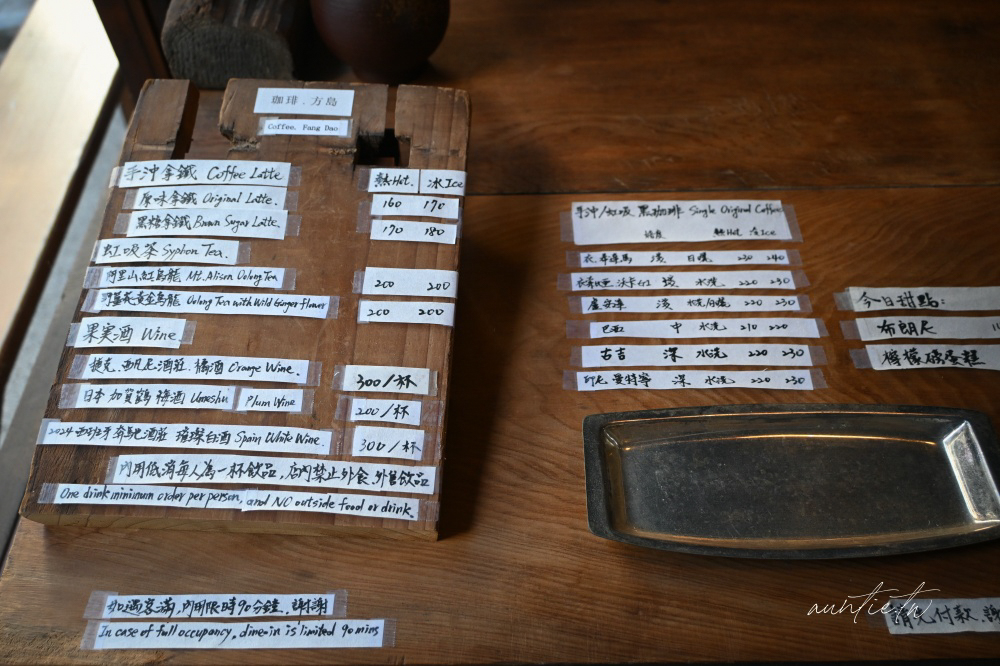 珈琲．方島
Coffee. Fang Dao
手沖拿鐵 Coffee Latte 熱Hot. 冰Ice
原味拿鐵 Original Latte. 160 170
黑糖拿鐵 Brown Sugar Latte. 170 180
虹吸茶 Syphon Tea.
阿里山紅烏龍 Mt. Alisan Oolong Tea 200 200
野薑花黃金烏龍 Oolong Tea with Wild Ginger flower 200 200
果実酒 Wine
捷克．亞凡尼酒莊．橘酒 Orange Wine. 300/杯
日本 加賀鶴 梅酒 Umeshu Plum Wine 200/杯
2024 西班牙奔馳酒莊 璀璨白酒 Spain White Wine. 300/杯
內用低消每人為一杯飲品，店內禁止外食、外售飲品
One drink minimum order per person, and NO outside food or drink.
如遇客滿，內用限時90分鐘．謝謝
In case of full occupancy, dine-in is limited 90 mins
手沖/虹吸 黑珈琲 Single Original Coffee
焙度 熱Hot 冰Ice
淺 日曬 230 240
水洗 220 230
盧安達 淺 水洗 220 230
巴西 中 水洗 210 220
古吉 深 水洗 220 230
印尼 曼特寧 深 水洗 220 230
今日甜點：
布朗尼
檸檬磅蛋糕
請先付款．謝
auntietw